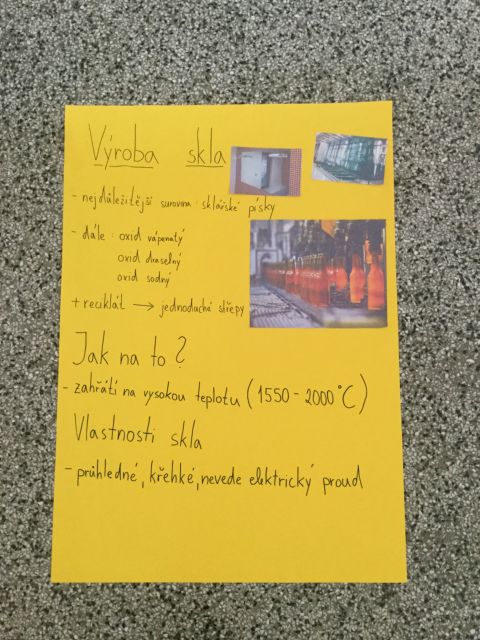 Výroba skla
- nejdůležitější surovina: sklářské písky
- dále: oxid vápenatý
oxid draselný
oxid sodný
+ reciklát → jednoduchá střepy
Jak na to?
- zahřátí na vysokou teplotu (1550 - 2000°C)
Vlastnosti skla
- průhledné, křehké, nevede elektrický proud